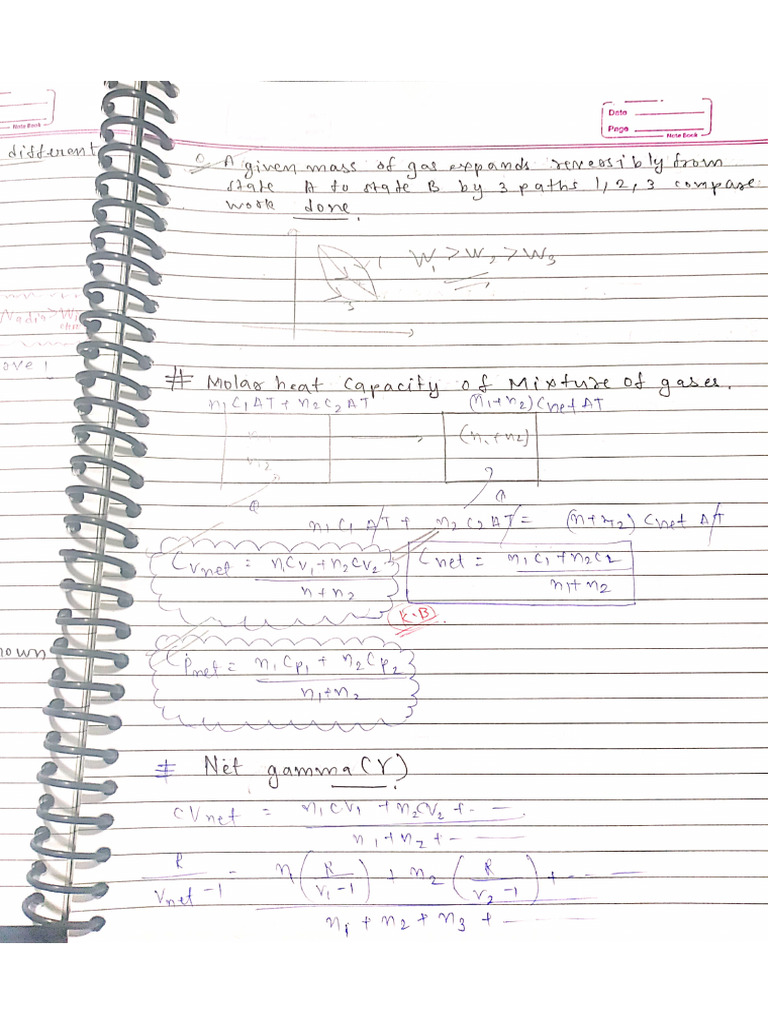 Note Book
Date
Page
Note Book
different
Q A given mass of gas expands reversibly from
state A to state B by 3 paths 1, 2, 3 compare
work done.
1 W₁ > W₂ > W₃
3
# Molar heat capacity of Mixture of gases.
n₁C₁ΔT + n₂C₂ΔT (n₁+n₂)CnetΔT
(n₁+n₂)
n₂
Q Q
n₁C₁ΔT + n₂C₂ΔT = (n+n₂) Cnet ΔT
Cvnet = n₁Cv₁+n₂Cv₂ / n+n₂ Cnet = n₁C₁+n₂C₂ / n₁+n₂
K.B
nown
Cpnet = n₁Cp₁ + n₂Cp₂ / n₁+n₂
# Net gamma (γ)
CVnet = n₁CV₁ + n₂CV₂ + - — / n₁+n₂+ - —
R / γnet -1 = n₁(R / γ₁-1) + n₂(R / γ₂-1) + - — / n₁+n₂+n₃ + —